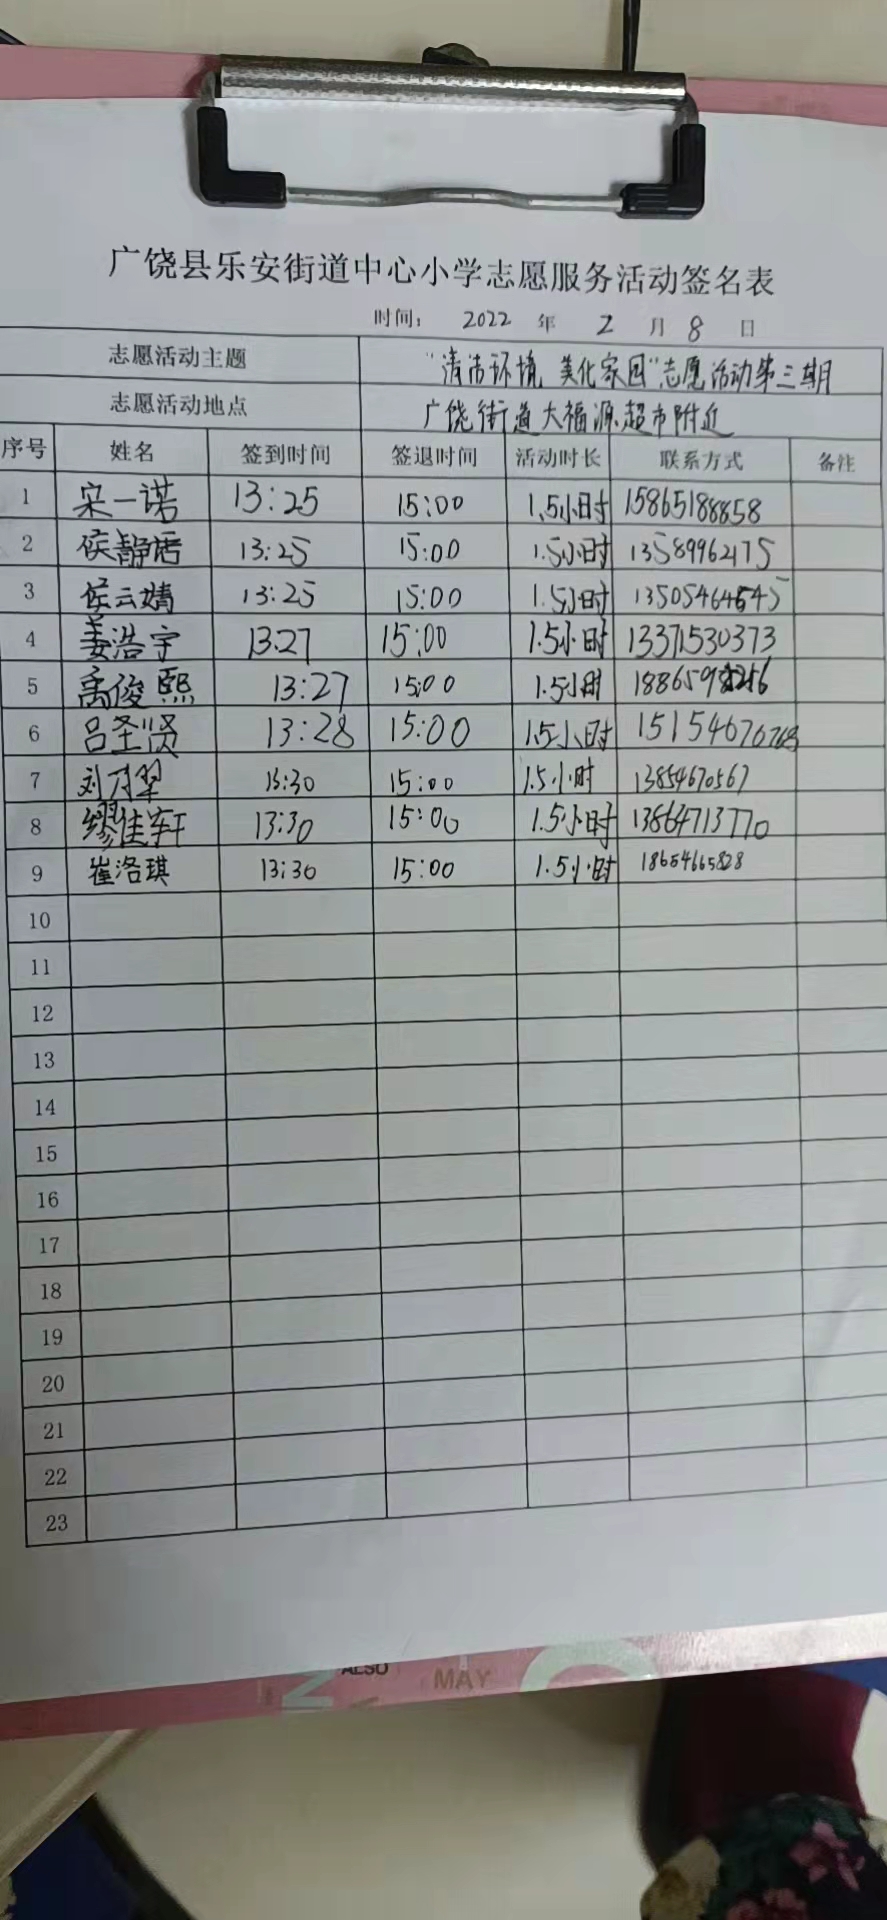 广饶县乐安街道中心小学志愿服务活动签名表
时间： 2022 年 2 月 8 日
志愿活动主题 "清洁环境 美化家园"志愿活动第三期
志愿活动地点 广饶街道大福源超市附近
序号 姓名 签到时间 签退时间 活动时长 联系方式 备注
1 宋一诺 13:25 15:00 1.5小时 15865188858
2 侯静语 13:25 15:00 1.5小时 13589962475
3 侯云婧 13:25 15:00 1.5小时 13505464645
4 姜浩宇 13:27 15:00 1.5小时 13371530373
5 禹俊熙 13:27 15:00 1.5小时
6 吕圣贤 13:28 15:00 1.5小时 15154676768
7 刘乃翠 13:30 15:00 1.5小时 13854670567
8 缪佳轩 13:30 15:00 1.5小时 13864713770
9 崔洛琪 13:30 15:00 1.5小时 18654665828
10
11
12
13
14
15
16
17
18
19
20
21
22
23
ALSO
MAY